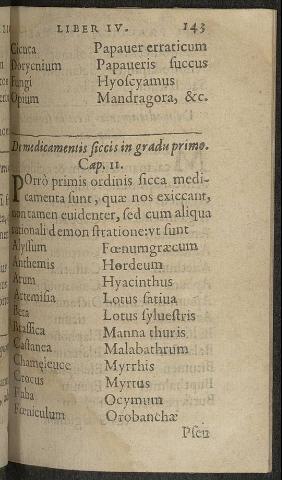 LIBER IV. 143
Cicuta Papauer erraticum
Dorycnium Papaueris succus
Fungi Hyoſcyamus
Opium Mandragora, &c.
De medicamentis ſiccis in gradu primo.
Cap. 11.
POrrò primis ordinis ſicca medi-
camenta ſunt, quæ nos exiccant,
non tamen euidenter, ſed cum aliqua
rationali demonſtratione: vt ſunt
Alyſſum Fœnumgræcum
Anthemis Hordeum
Arum Hyacinthus
Artemiſia Lotus ſatiua
Beta Lotus ſylueſtris
Braſſica Manna thuris
Caſtanea Malabathrum
Chameleuce Myrrhis
Crocus Myrtus
Faba Ocymum
Fœniculum Orobanchæ
Pſeu